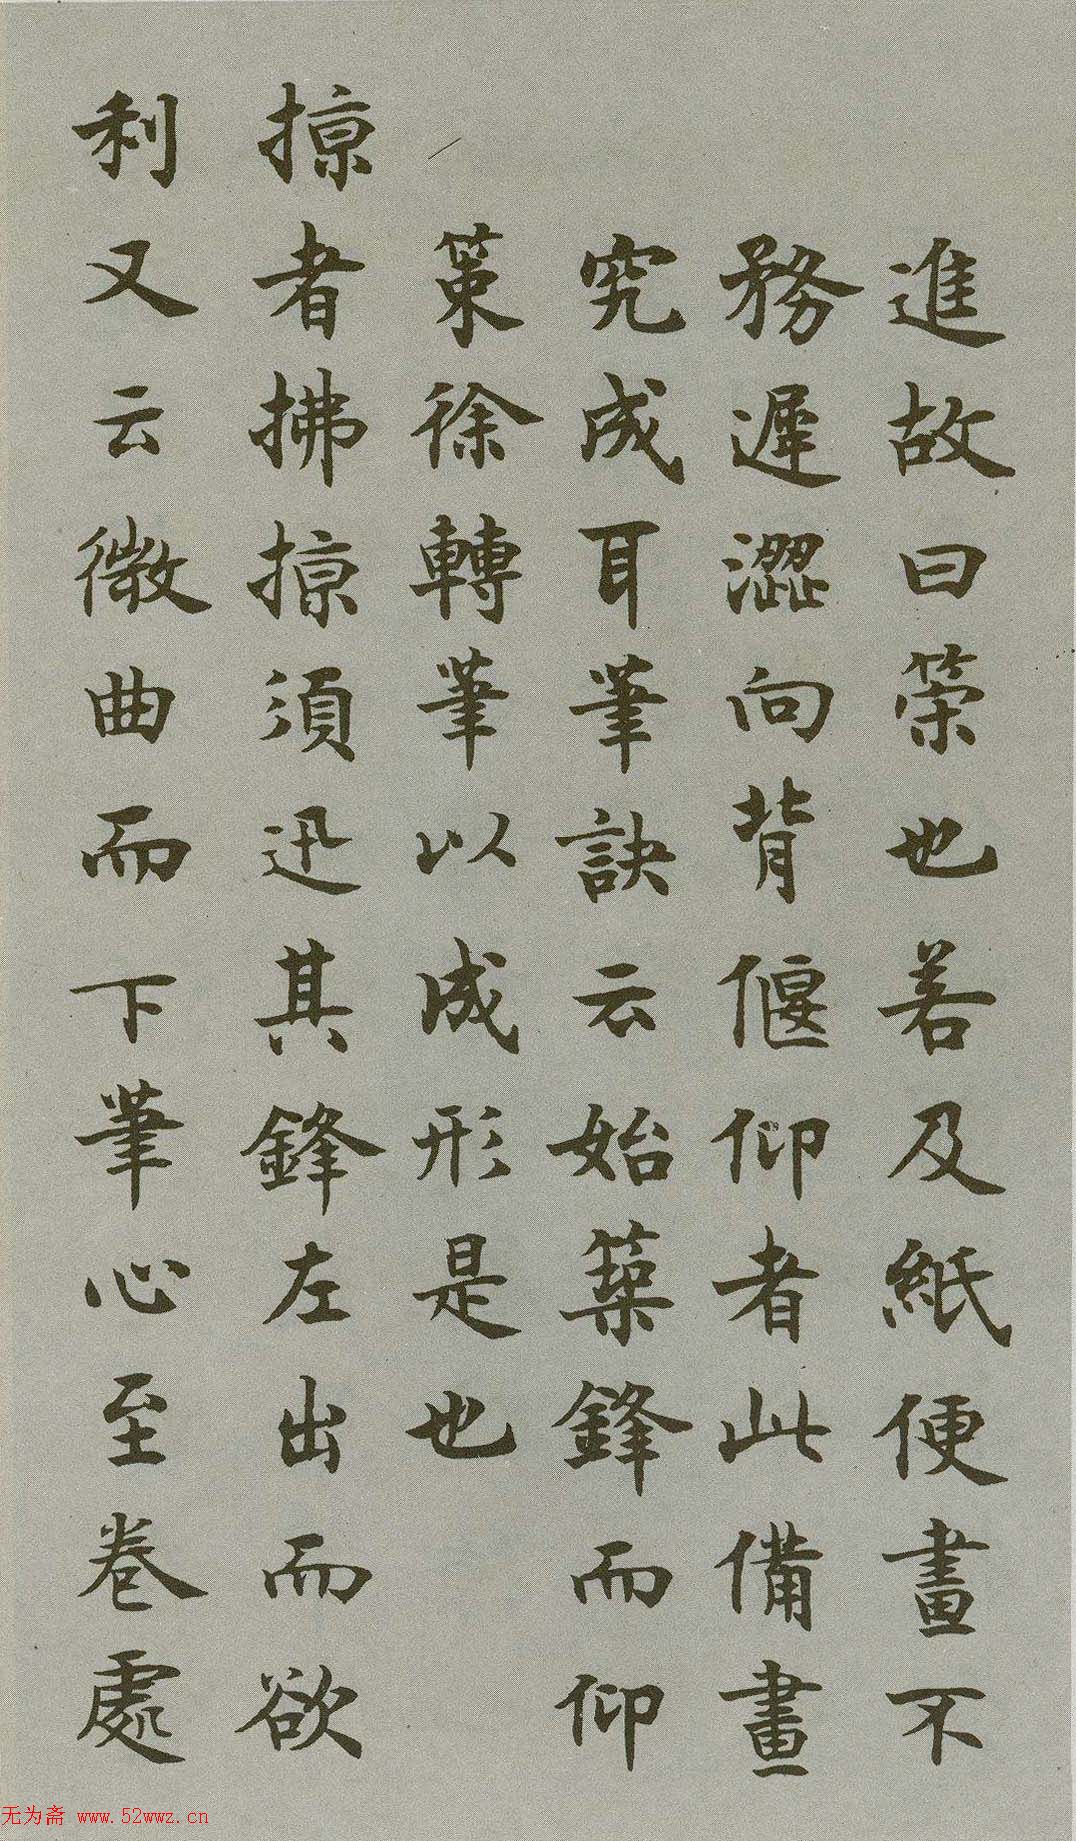 進故曰策也若及紙便畫不
務遲澀向背偃仰者此備畫
究成耳筆訣云始築鋒而仰
策徐轉筆以成形是也
掠者拂掠須迅其鋒左出而欲
利又云微曲而下筆心至卷處
无为斋 www.52wwz.cn